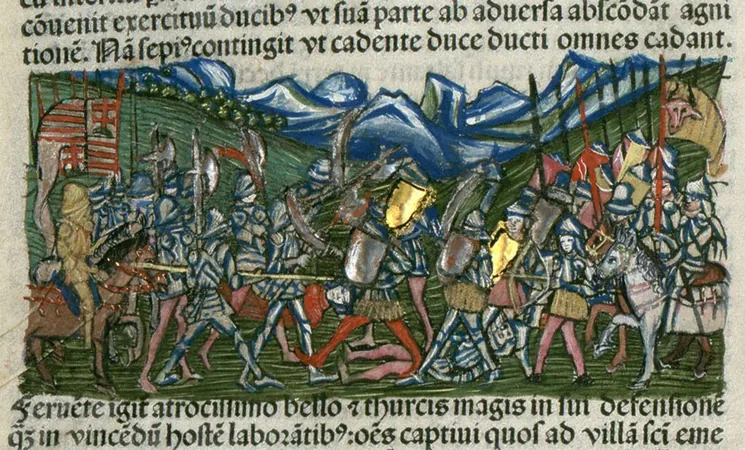 cōuenit exercituū ducibꝰ vt suā parte ab aduersa abscōdāt agni
tionē. Nā sepiꝰ contingit vt cadente duce ducti omnes cadant.
Feruēte igit atrocissimo bello ⁊ thurcis magis in sui defensionē
qꝫ in vincēdū hostē laborātibꝰ: oēs captiui quos ad villā scī eme